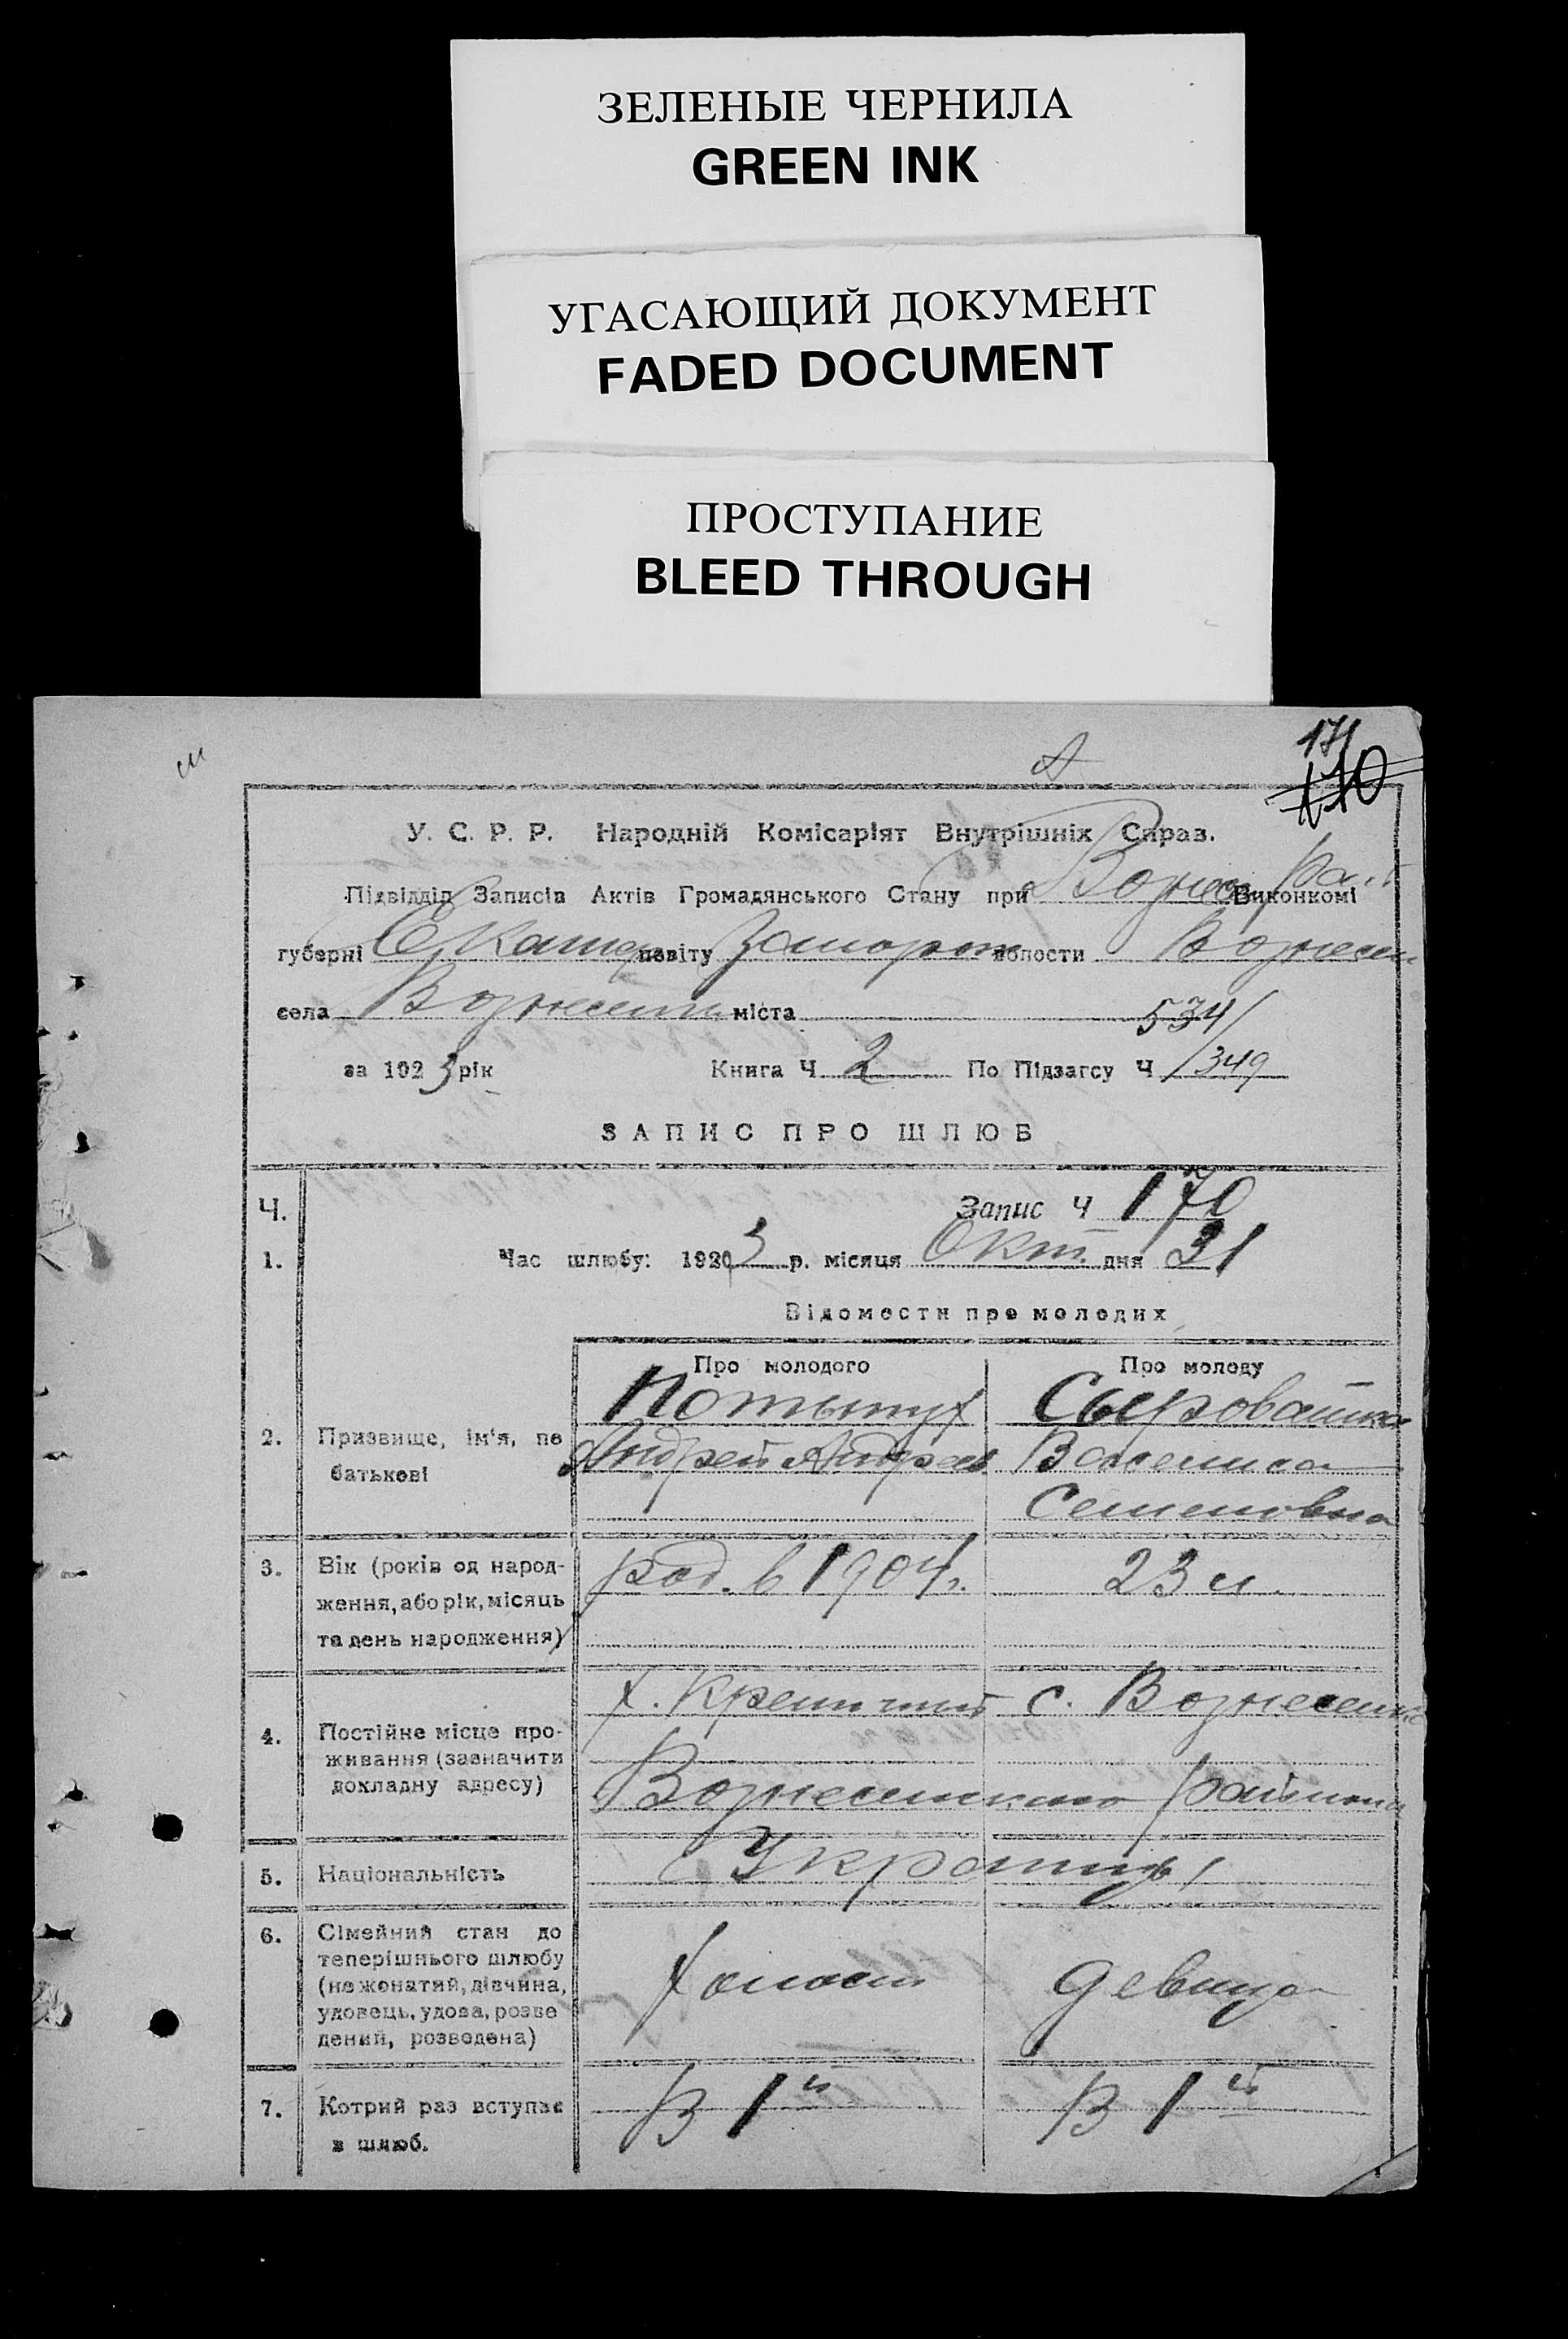 ЗЕЛЕНЫЕ ЧЕРНИЛА
GREEN INK
УГАСАЮЩИЙ ДОКУМЕНТ
FADED DOCUMENT
ПРОСТУПАНИЕ
BLEED THROUGH
171
170
У. С. Р. Р. Народній Комісаріят Внутрішніх Справ.
Підвідділ Записів Актів Громадянського Стану при Вознес Рай Виконкомі
губерні Екатер повіту Запорож волости Вознесен
села Вознесенка міста
534/
за 192 3 рік Книга Ч 2 По Підзагсу Ч /349
ЗАПИС ПРО ШЛЮБ
Ч. Запис Ч 170
1. Час шлюбу: 1923 р. місяця Окт. дня 31
Відомости про молодих
Про молодого Про молоду
2. Призвище, ім'я, по батькові
Андрей Андреев
Семеновна
3. Вік (років од народ-
ження, або рік, місяць
та день народження)
род. в 1904 г. 23 л.
4. Постійне місце про-
живання (зазначити
докладну адресу)
с. Вознесенка
Вознесенского района
5. Національність Украинцы
6. Сімейний стан до
теперішнього шлюбу
(не жонатий, дівчина,
удовець, удова, розве
дений, розведена)
Холост девица
7. Котрий раз вступає
в шлюб.
В 1й В 1й